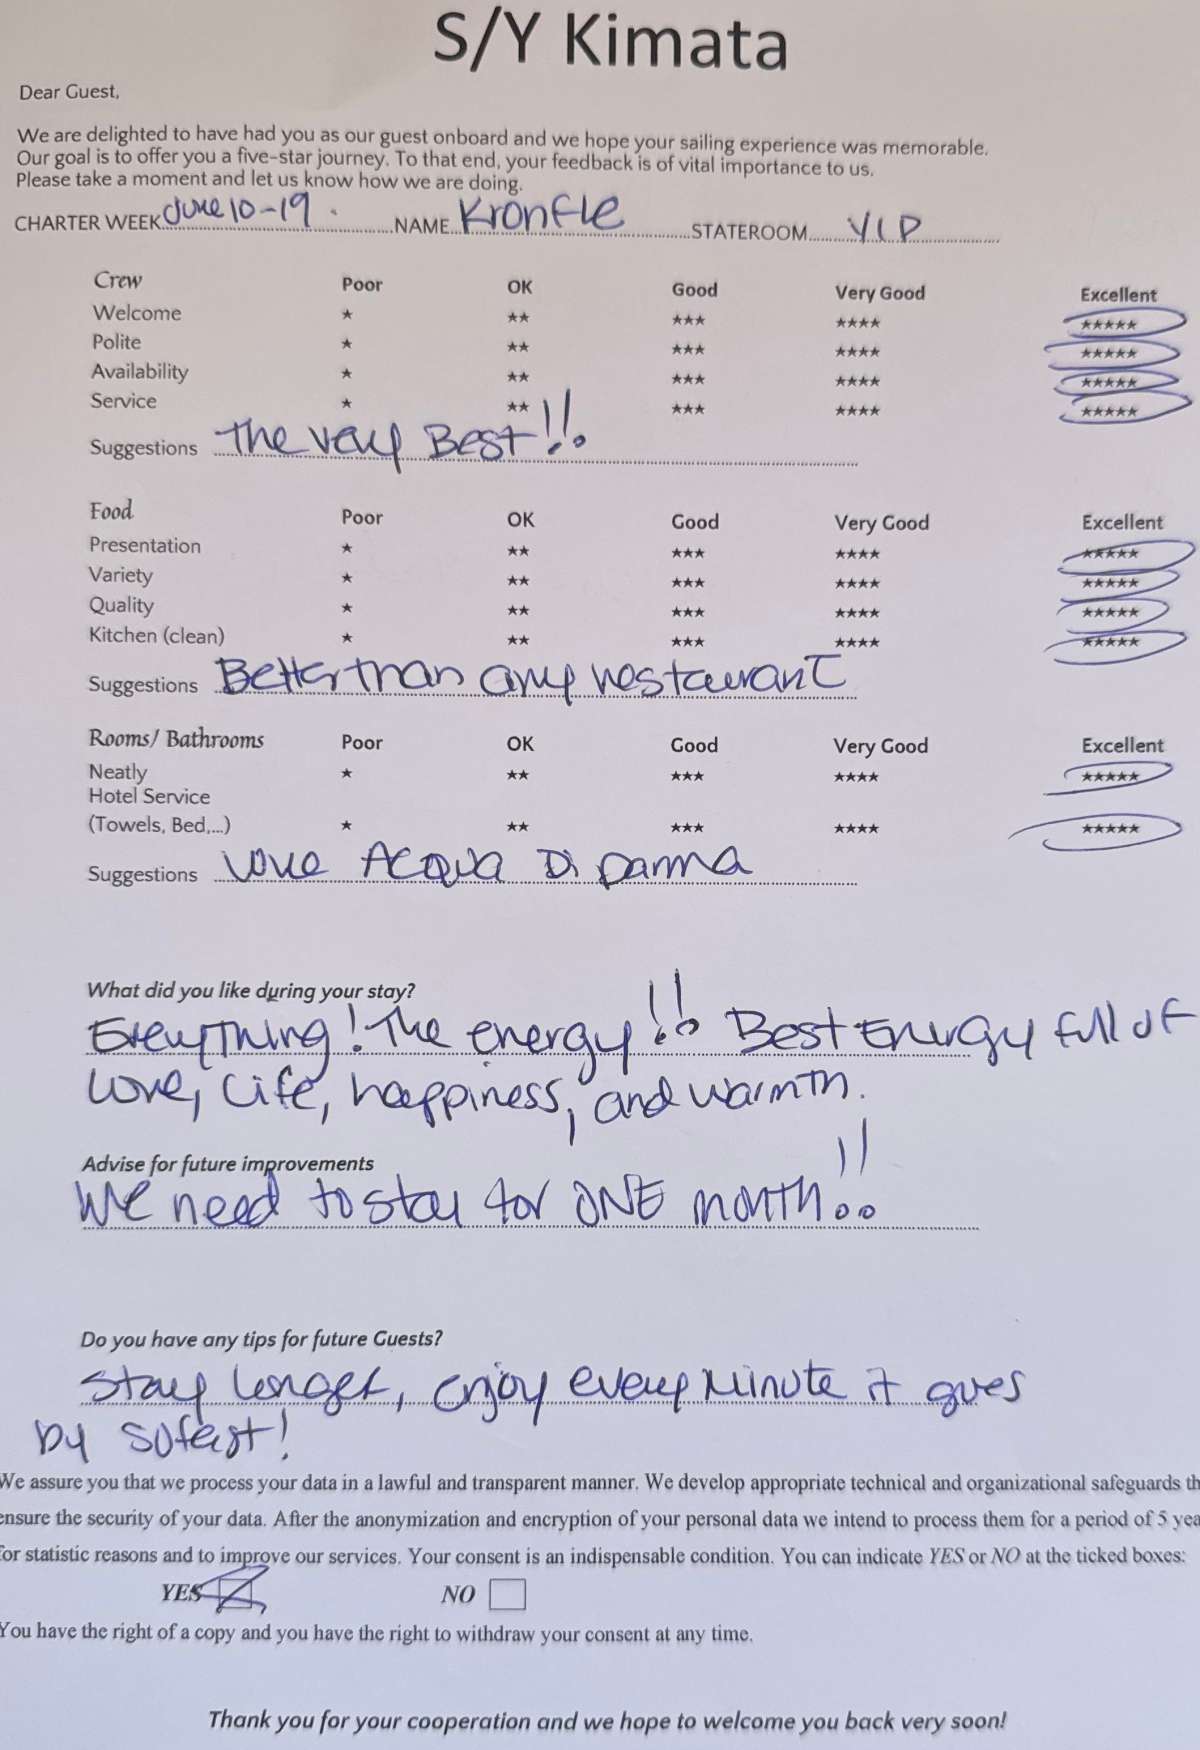 S/Y Kimata
Dear Guest,
We are delighted to have had you as our guest onboard and we hope your sailing experience was memorable.
Our goal is to offer you a five-star journey. To that end, your feedback is of vital importance to us.
Please take a moment and let us know how we are doing.
CHARTER WEEK June 10-19. NAME Kronfle STATEROOM VIP
Crew Poor OK Good Very Good Excellent
Welcome ★ ★★ ★★★ ★★★★ ★★★★★
Polite ★ ★★ ★★★ ★★★★ ★★★★★
Availability ★ ★★ ★★★ ★★★★ ★★★★★
Service ★ ★★ ★★★ ★★★★ ★★★★★
Suggestions The very Best!!
Food Poor OK Good Very Good Excellent
Presentation ★ ★★ ★★★ ★★★★ ★★★★★
Variety ★ ★★ ★★★ ★★★★ ★★★★★
Quality ★ ★★ ★★★ ★★★★ ★★★★★
Kitchen (clean) ★ ★★ ★★★ ★★★★ ★★★★★
Suggestions Better than any restaurant
Rooms/ Bathrooms Poor OK Good Very Good Excellent
Neatly ★ ★★ ★★★ ★★★★ ★★★★★
Hotel Service
(Towels, Bed,...) ★ ★★ ★★★ ★★★★ ★★★★★
Suggestions Love Acqua Di Parma
What did you like during your stay?
Everything! The energy!! Best Energy full of
love, life, happiness, and warmth.
Advise for future improvements
We need to stay for ONE month!!
Do you have any tips for future Guests?
Stay longer, enjoy every minute it goes
by so fast!
We assure you that we process your data in a lawful and transparent manner. We develop appropriate technical and organizational safeguards th
ensure the security of your data. After the anonymization and encryption of your personal data we intend to process them for a period of 5 yea
for statistic reasons and to improve our services. Your consent is an indispensable condition. You can indicate YES or NO at the ticked boxes:
YES NO
You have the right of a copy and you have the right to withdraw your consent at any time.
Thank you for your cooperation and we hope to welcome you back very soon!